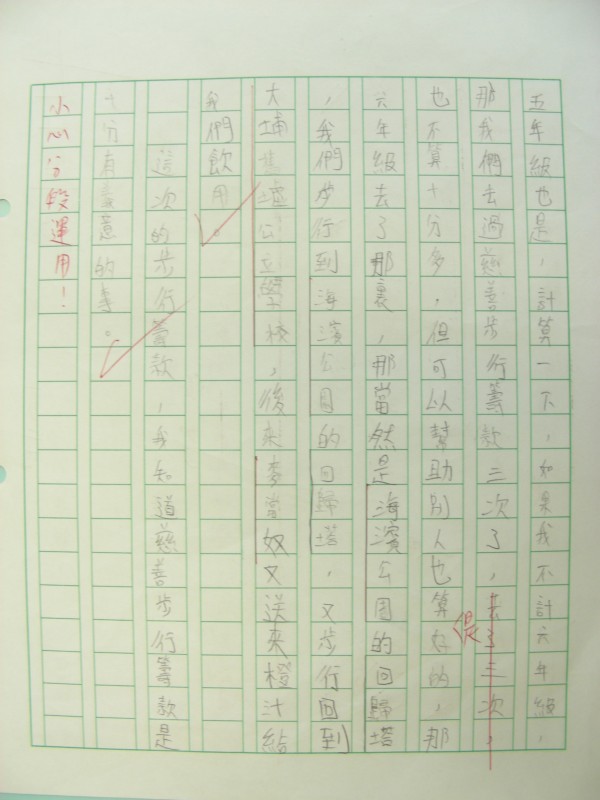 五年級也是，計算一下，如果我不計六年級，
那我們去過慈善步行籌款三次了，去了三次，
也不算十分多，但可以幫助別人也算好的，那
很
六年級去了那裏，那當然是海濱公園的回歸塔
，我們步行到海濱公園的回歸塔，又步行回到
大埔舊墟公立學校，後來麥當奴又送來橙汁給
我們飲用。
這次的步行籌款，我知道慈善步行籌款是
十分有意義的事。
小心分段運用！